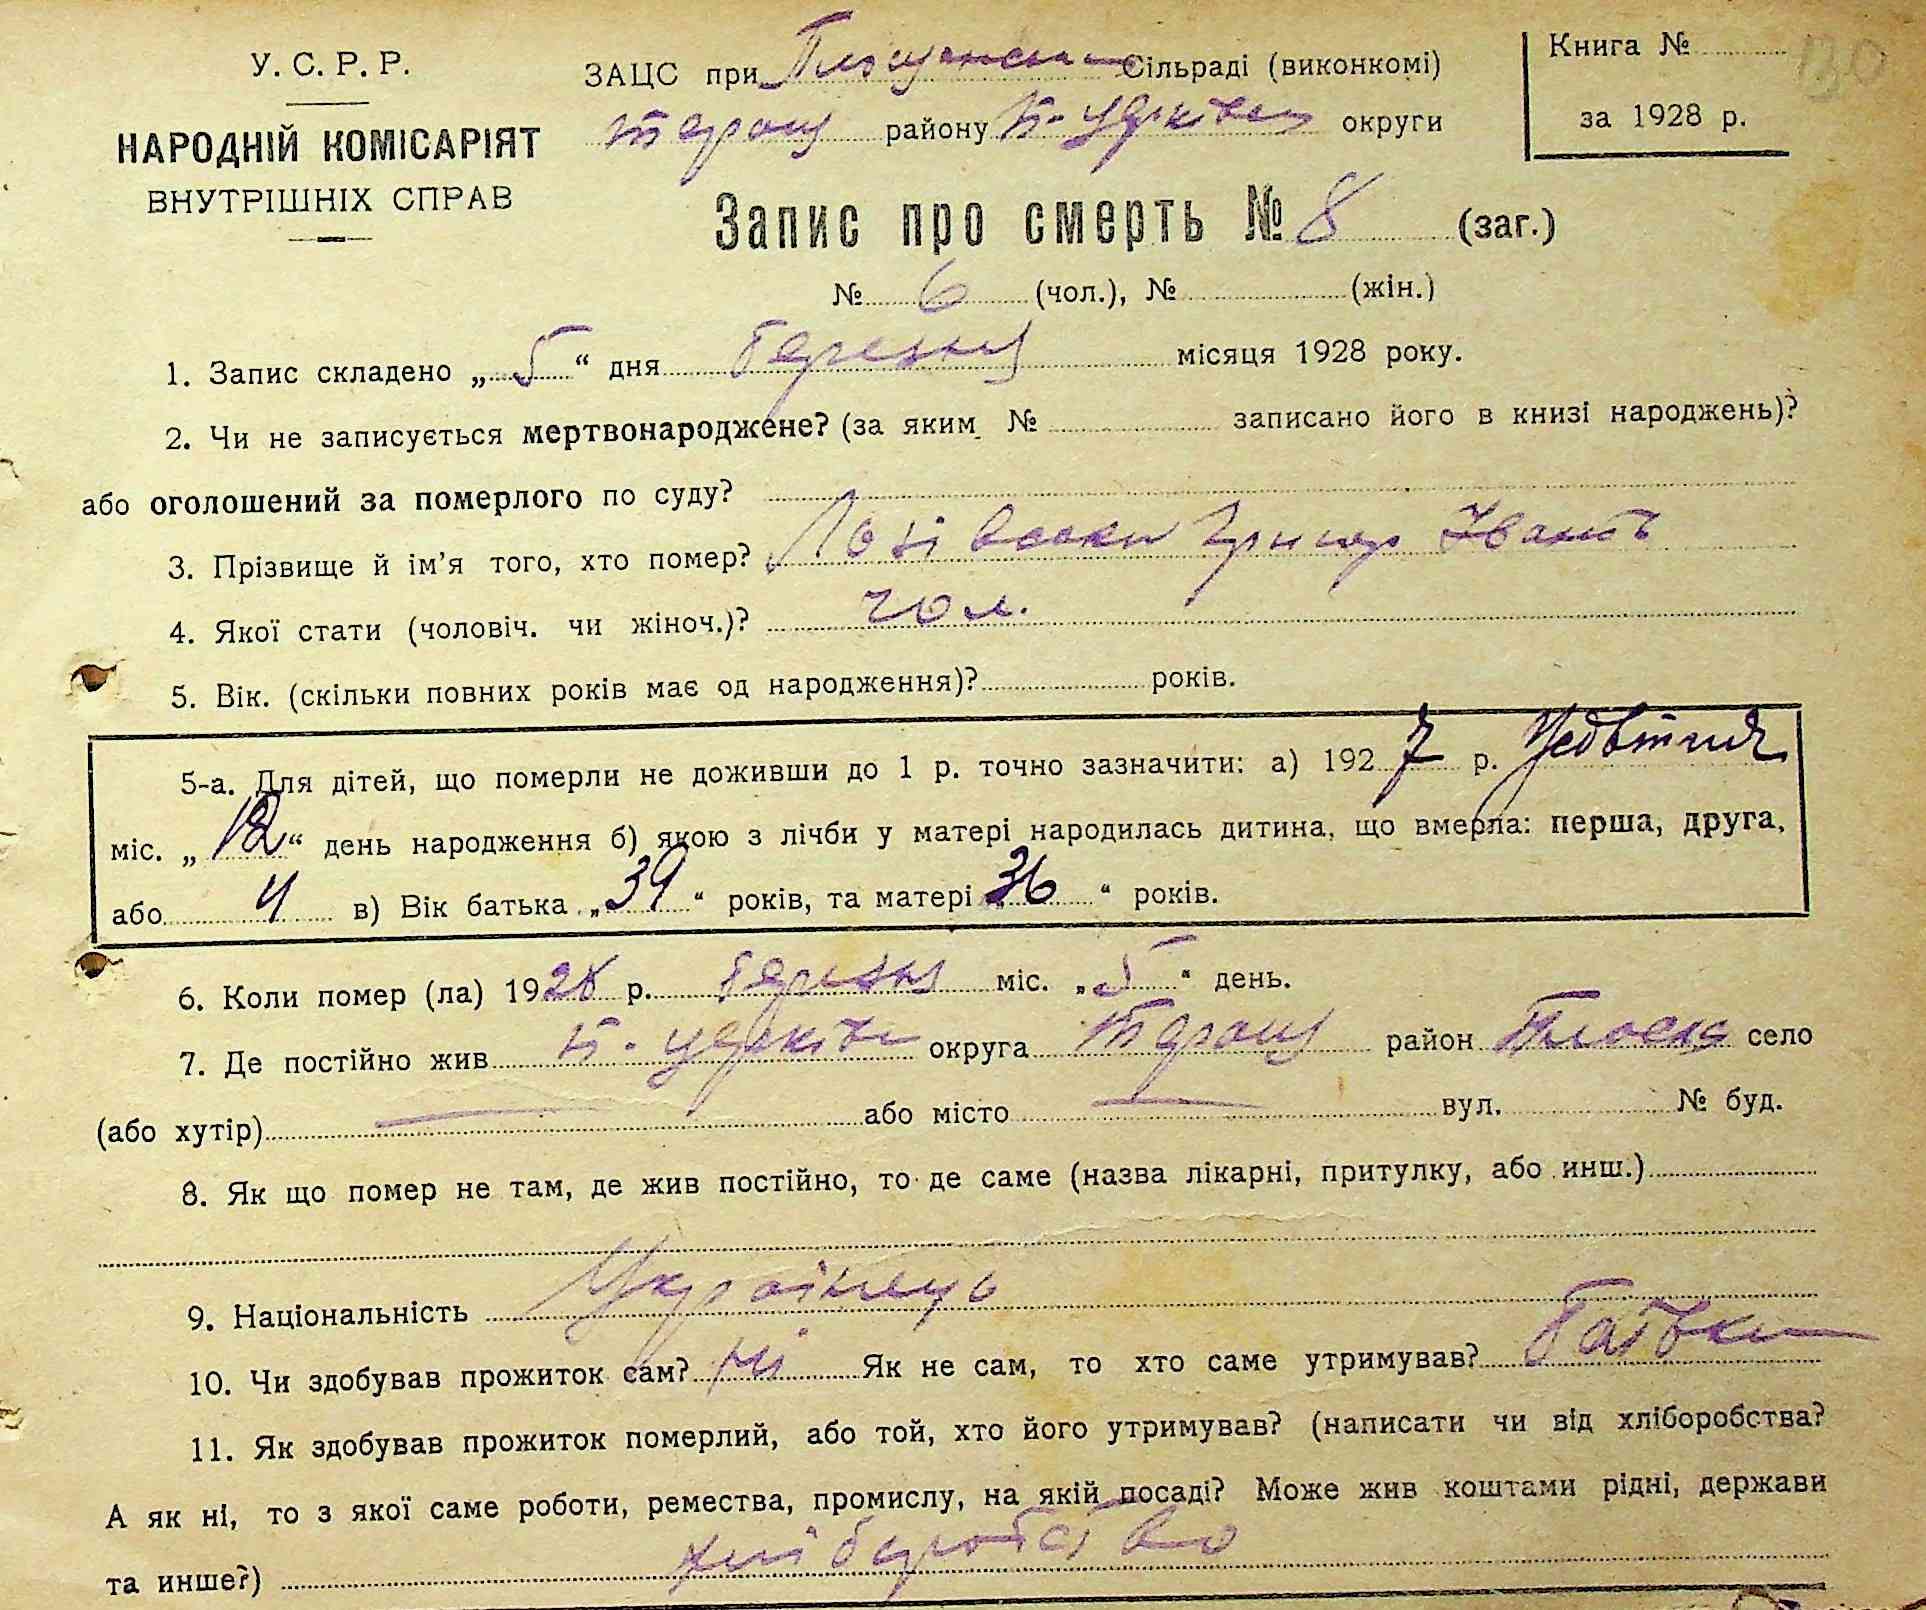 У. С. Р. Р.
НАРОДНІЙ КОМІСАРІЯТ
ВНУТРІШНІХ СПРАВ
ЗАЦС при Сільраді (виконкомі)
району Б-церків округи
Книга № 130
за 1928 р.
Запис про смерть № 8 (заг.)
№ 6 (чол.), № (жін.)
1. Запис складено „ 5 “ дня березня місяця 1928 року.
2. Чи не записується мертвонароджене? (за яким № записано його в книзі народжень)?
або оголошений за померлого по суду?
3. Прізвище й ім’я того, хто помер? Григор Іванів
4. Якої стати (чоловіч. чи жіноч.)? чол.
5. Вік. (скільки повних років має од народження)? років.
5-а. Для дітей, що померли не доживши до 1 р. точно зазначити: а) 1927 р.
міс. „ 12 “ день народження б) якою з лічби у матері народилась дитина, що вмерла: перша, друга,
або 4 в) Вік батька „ 39 “ років, та матері „ 36 “ років.
6. Коли помер (ла) 1928 р. березня міс. „ 5 “ день.
7. Де постійно жив Б-церків округа район село
(або хутір) — або місто — вул. № буд.
8. Як що помер не там, де жив постійно, то де саме (назва лікарні, притулку, або инш.)
9. Національність Українець
10. Чи здобував прожиток сам? ні Як не сам, то хто саме утримував? Батьки
11. Як здобував прожиток померлий, або той, хто його утримував? (написати чи від хліборобства?
А як ні, то з якої саме роботи, ремества, промислу, на якій посаді? Може жив коштами рідні, держави
та инше?) хліборобство